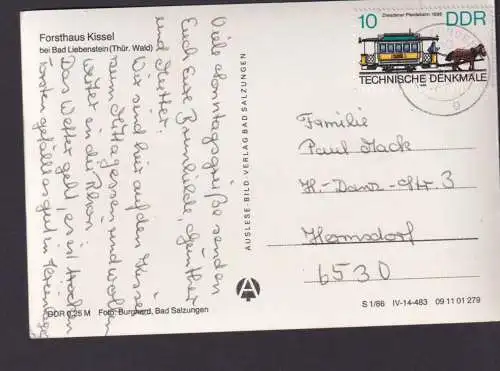 Forsthaus Kissel
bei Bad Liebenstein (Thür. Wald)
Viele Sonntagsgrüße senden
Euch Eure Brunhilde, Günther
und Mutter.
Wir sind hier auf dem Kissel
zum Mittagessen und wollen
weiter in die Rhön
Das Wetter geht, es ist trocken
Torsten gefällt es gut in
AUSLESE-BILD-VERLAG BAD SALZUNGEN
10 Dresdener Pferdebahn 1886 DDR
TECHNISCHE DENKMALE
Familie
Paul Jack
H.-Danz-Str. 3
Hermsdorf
6530
A
DDR 0,25 M Foto: Burghard, Bad Salzungen
S 1/86 IV-14-483 09 11 01 279